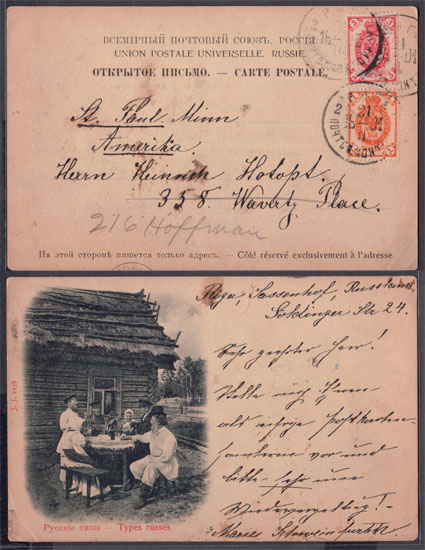 ВСЕМІРНЫЙ ПОЧТОВЫЙ СОЮЗЪ. РОССІЯ.
UNION POSTALE UNIVERSELLE. RUSSIE.
ОТКРЫТОЕ ПИСЬМО. — CARTE POSTALE.
St. Paul Minn
Amerika.
Herrn Heinrich Hotopt.
358. Wavertz Place.
216 Hoffman
На этой сторонѣ пишется только адресъ. — Côté réservé exclusivement à l'adresse.
Riga, Sassenhof, Russland
Goldinger Str 24.
Sehr geehrter Herr!
Stelle mich Ihnen
als eifrige Postkarten-
sammlerin vor und
bitte sehr um
Wiedervergeltung!
Marie
Русскіе типы — Types russes